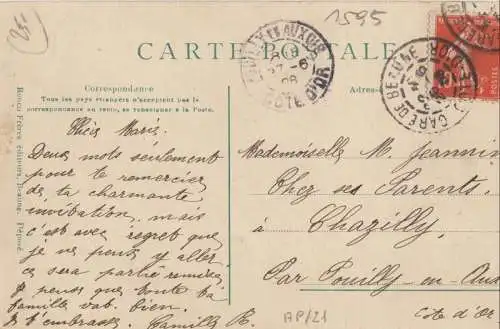 25
1595
CARTE POSTALE
POUILLY EN AUXOIS
27-6
08
COTE D'OR
GARE DE BEAUNE
POSTES
Correspondance
Tous les pays étrangers n'acceptent pas la
correspondance au recto, se renseigner à la Poste.
Ronco Frères, éditeurs, Beaune. Déposé.
Chère Marie
Deux mots seulement
pour te remercier
de ta charmante
invitation, mais
c'est avec regret que
je ne peux y aller
ce sera partie remise,
Je pense que toute ta
famille va bien.
Je t'embrasse. Camille R.
Mademoiselle M. Jeannin
Chez ses Parents
à Chazilly
Par Pouilly-en-Aux
Côte d'Or
AP/21